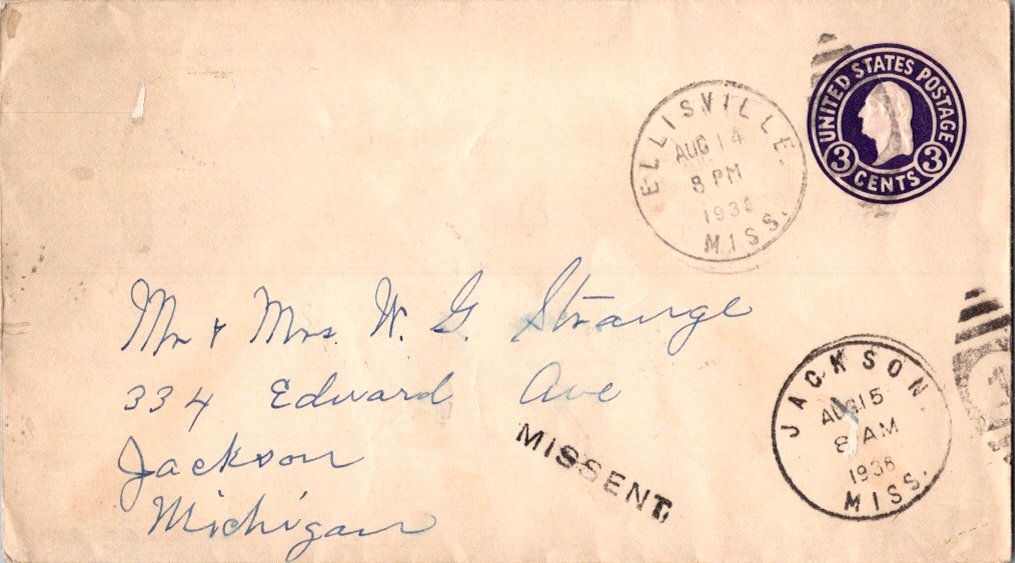 UNITED STATES POSTAGE
3 CENTS 3
ELLISVILLE
AUG 14
8 PM
1938
MISS.
Mr & Mrs. W. G. Strange
334 Edward Ave
Jackson
Michigan
MISSENT
JACKSON
AUG 15
8 AM
1938
MISS.